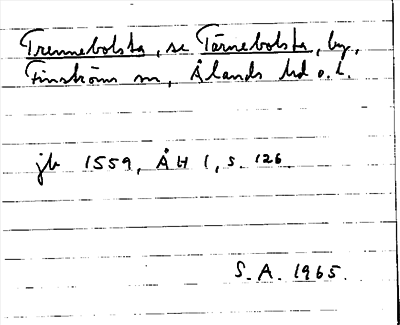 Trennebolsta, se Tärnebolsta, by,
Finströms sn, Ålands hd o. l.
jb 1559, ÅH 1, s. 126
S. A. 1965.